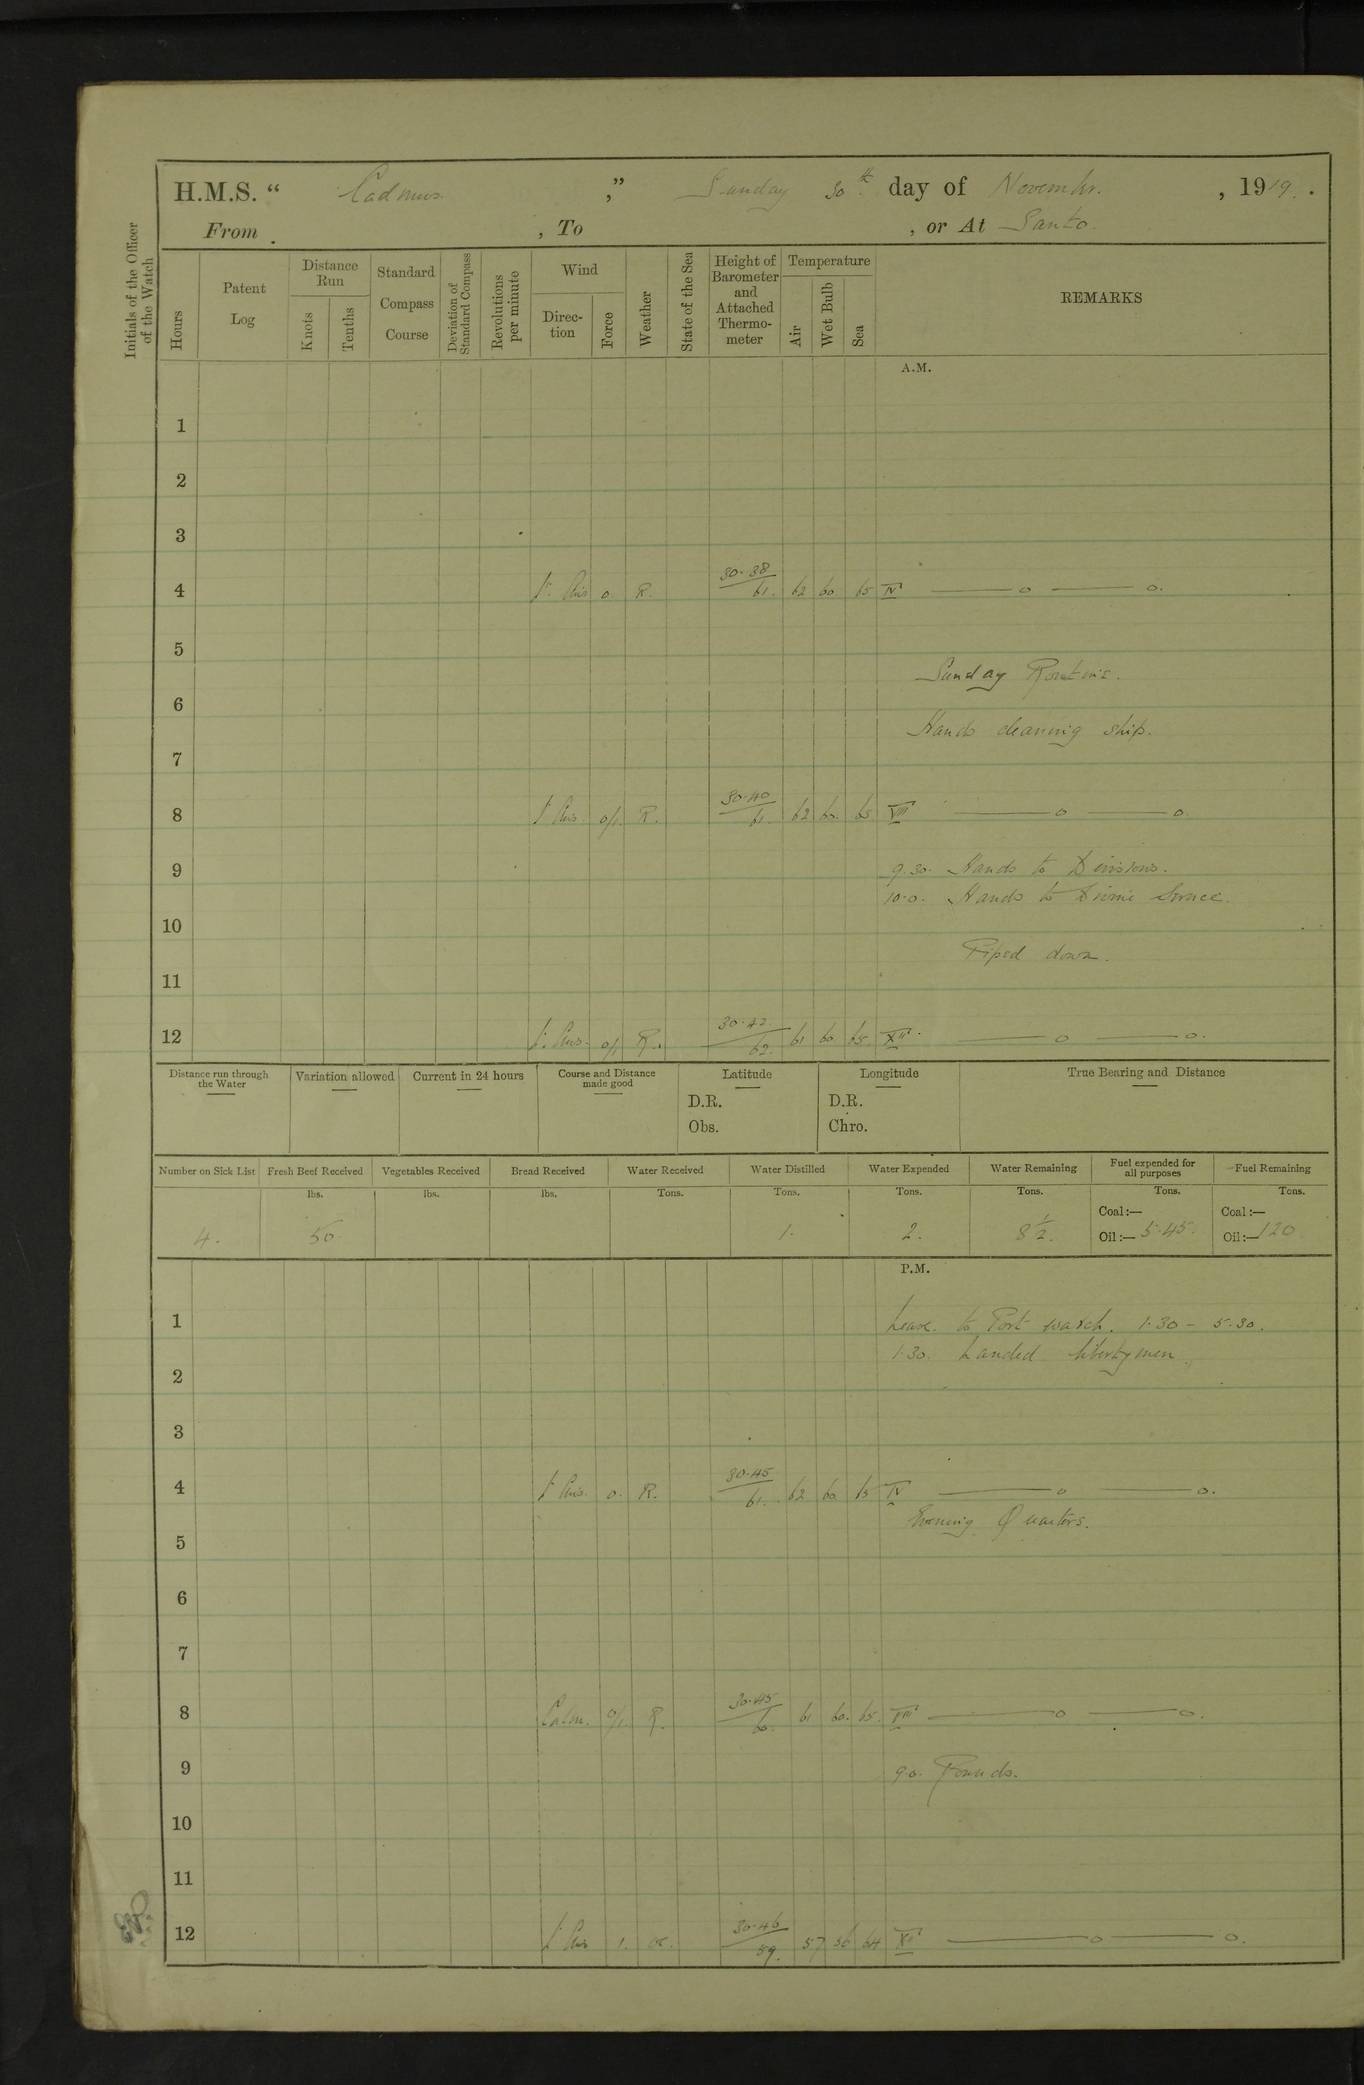 H.M.S. “ Cadmus ” , Sunday 30th day of Novembr. , 1919.
From , To , or At Santo.
Initials of the Officer of the Watch
Hours
Patent Log
Distance Run
Knots
Tenths
Standard Compass Course
Deviation of Standard Compass
Revolutions per minute
Wind
Direction
Force
Weather
State of the Sea
Height of Barometer and Attached Thermometer
Temperature
Air
Wet Bulb
Sea
REMARKS
A.M.
1
2
3
4 lt. Airs 0. R. 30.38 61. 62 60 65 IV —— o —— o.
5
Sunday Routine.
6
Hands cleaning ship.
7
8 lt Airs. 0/1. R. 30.40 61. 62 60. 65 VIII —— o —— o.
9 9.30. Hands to Divisions.
10.0. Hands to Divine Service.
10
Piped down.
11
12 lt. Airs. 0/1 R. 30.42 62. 61 60 65. XII —— o —— o.
Distance run through the Water
Variation allowed
Current in 24 hours
Course and Distance made good
Latitude
D.R.
Obs.
Longitude
D.R.
Chro.
True Bearing and Distance
Number on Sick List Fresh Beef Received Vegetables Received Bread Received Water Received Water Distilled Water Expended Water Remaining Fuel expended for all purposes Fuel Remaining
lbs. lbs. lbs. Tons. Tons. Tons. Tons. Tons. Tons.
Coal :— Coal :—
4. 50 1. 2. 8 1/2. Oil :— 5.45. Oil :— 120
P.M.
1 Leave to Port watch. 1.30 – 5.30.
1.30. Landed libertymen.
2
3
4 lt Airs. 0. R. 30.45 61. 62 60 65 IV —— o —— o.
Evening Quarters.
5
6
7
8 Calm. 0/1. R. 30.45 60. 61 60. 65. VIII —— o —— o.
9 9.0. Rounds.
10
11
12 lt Airs 1. oc. 30.46 59. 57 56 64 XII —— o —— o.